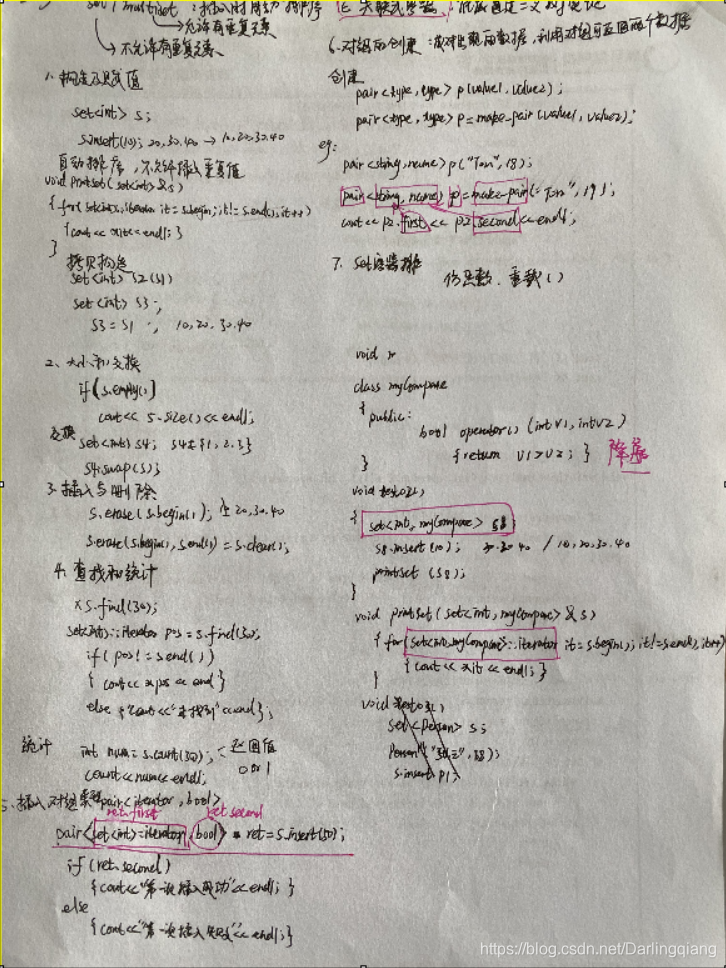 set / multiset : 插入时自动排序
→允许有重复元素
→不允许有重复元素
1. 构造及赋值
set<int> s;
s.insert(10); 20,30.40 → 10,20.30.40
自动排序,不允许插入重复值
void printset(set<int>&s)
{ for(set<int>::iterator it = s.begin; it != s.end(); it++)
{cout << *it << endl; }
}
拷贝构造
set<int> s2(s1)
set<int> s3;
s3 = s1 ; 10,20.30.40
2. 大小和交换
if(s.empty())
cout << s.size() << endl;
交换 set<int> s4; s4是{1,2,3}
s4.swap(s);
3. 插入与删除
s.erase(s.begin()); 20,30.40
s.erase(s.begin(), s.end()) = s.clear();
4. 查找和统计
s.find(30);
set<int>::iterator pos = s.find(30);
if(pos != s.end())
{ cout << *pos << end }
else {cout << "未找到" << end};
统计 int num = s.count(30); < 返回值
0 or 1
count << num << endl;
5. 插入对组 pair<iterator, bool>
ret.first ret.second
pair<set<int>::iterator, bool> ret = s.insert(50);
if(ret.second)
{cout<<"第一次插入成功"<<endl; }
else
{cout<<"第一次插入失败"<<endl;}
6. 对组的创建:成对出现的数据,利用对组可返回两个数据
创建
pair<type, type> p(value1, value2);
pair<type, type> p = make_pair(value1, value2);
eg:
pair<string, name> p("Tom", 18);
pair<string, name> p = make_pair("Tom", 19);
cout << p2.first << p2.second << endl;
7. set容器排
仿函数. 重载()
void
class myCompare
{ public:
bool operator() (int v1, int v2)
{return v1>v2; } 降序
}
void test02()
{ set<int, myCompare> s8
s8.insert(10); 20.30.40 / 10,20.30.40
printset(s8);
}
void printset(set<int, myCompare>&s)
{ for(set<int, myCompare>::iterator it = s.begin(); it != s.end(); it++)
{cout << *it << endl;}
}
void test03()
set<person> s;
Person ("张三", 18);
s.insert(p1);
https://blog.csdn.net/Darlingqiang